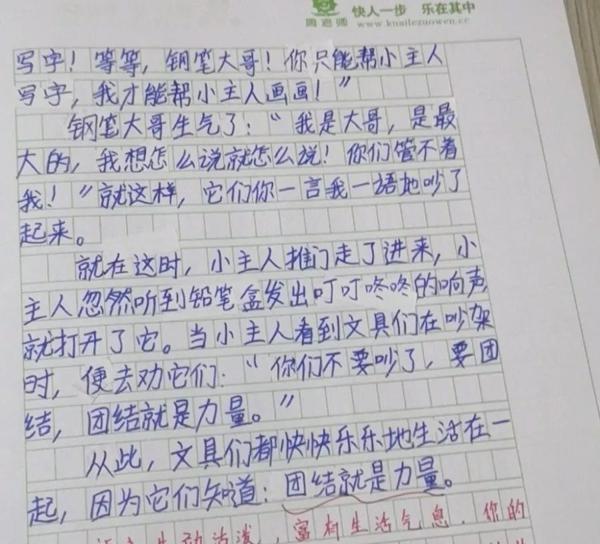 快人一步 乐在其中
周老师 www.kuailezuowen.cc
写字！等等，钢笔大哥！你只能帮小主人
写字，我才能帮小主人画画！”
钢笔大哥生气了：“我是大哥，是最
大的，我想怎么说就怎么说！你们管不着
我！”就这样，它们你一言我一语地吵了
起来。
就在这时，小主人推门走了进来，小
主人忽然听到铅笔盒发出叮叮咚咚的响声
就打开了它。当小主人看到文具们在吵架
时，便去劝它们：“你们不要吵了，要团
结，团结就是力量。”
从此，文具们都快快乐乐地生活在一
起，因为它们知道：团结就是力量。
生动活泼，富有生活气息，你的